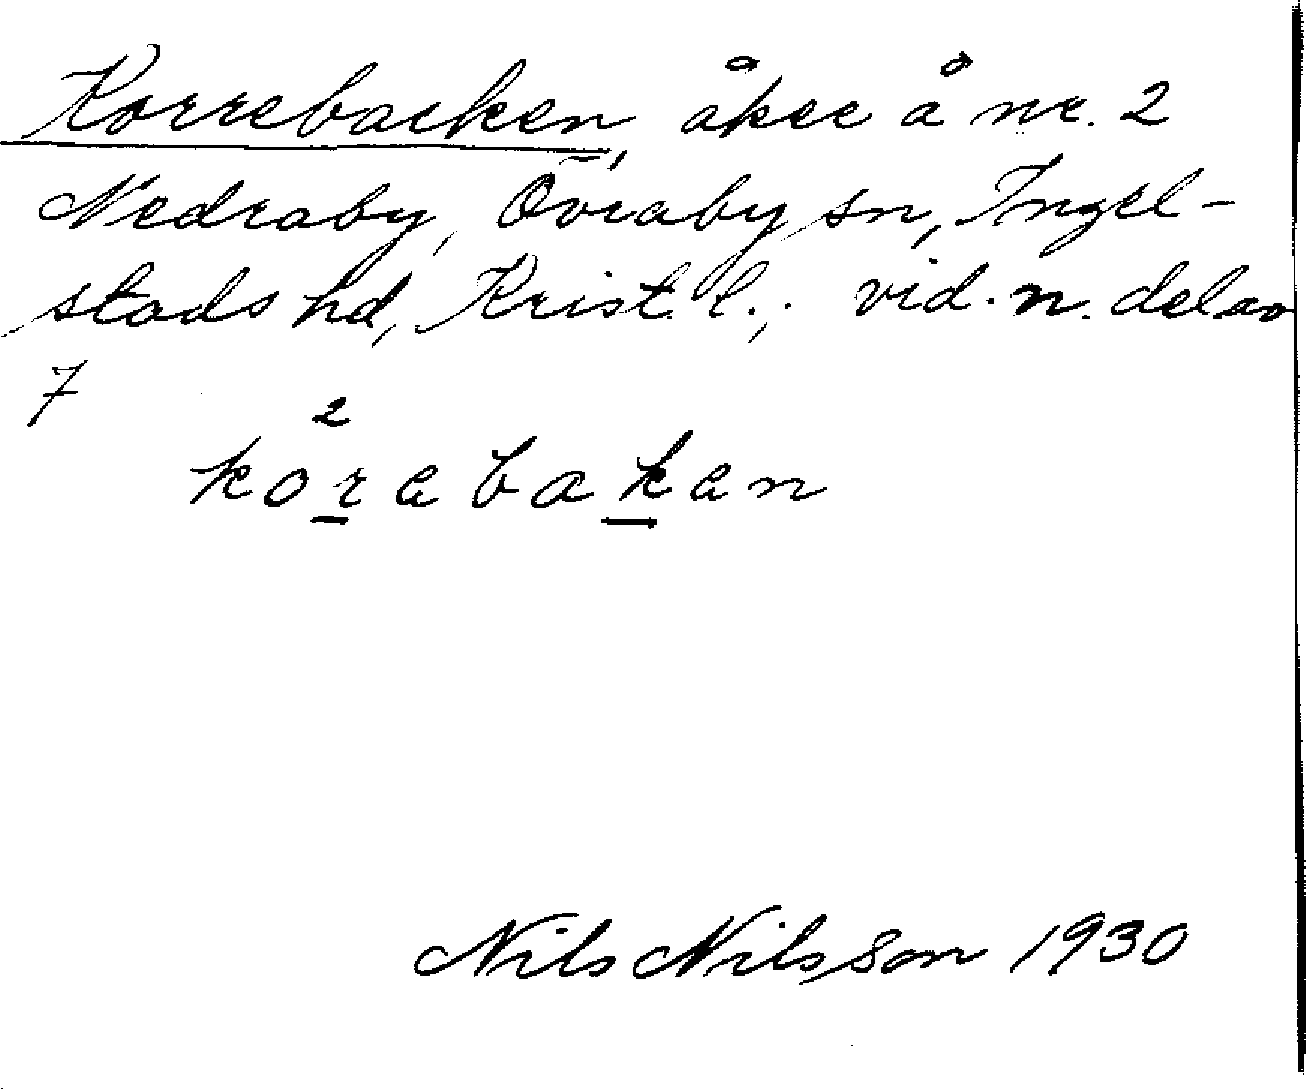 Korrebacken, åker å nr. 2
Nedraby, Övraby sn, Ingel-
stads hd, Krist. l.; vid n. del av
7
2
korabakan
Nils Nilsson 1930